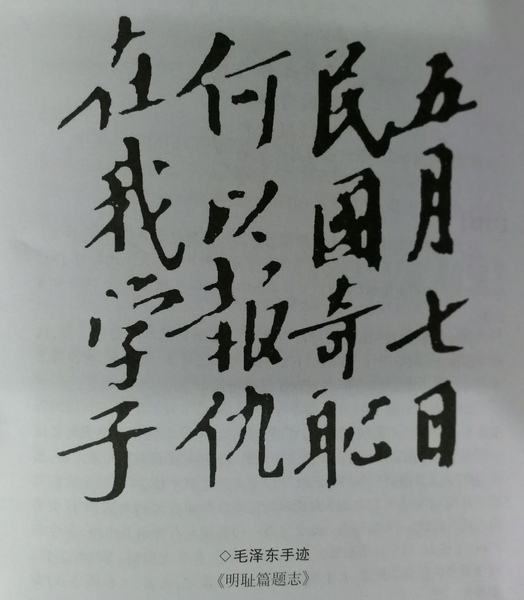 五月七日
民國奇恥
何以報仇
在我学子
◇毛泽东手迹
《明耻篇题志》